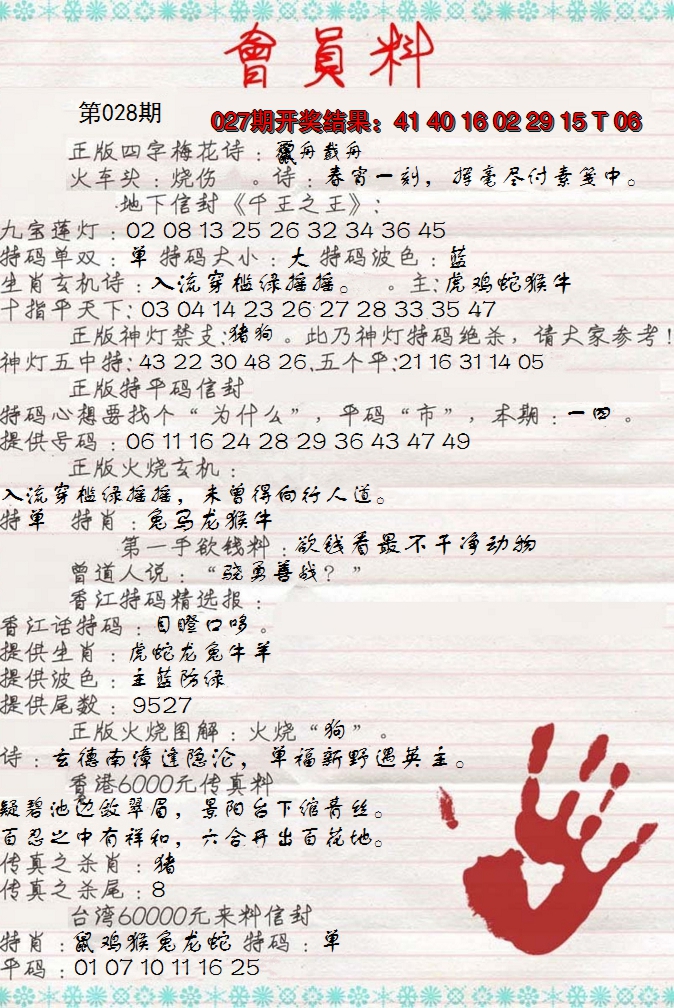 會員料
第028期
027期开奖结果：41 40 16 02 29 15 T 06
正版四字梅花诗：覆舟载舟
火车头：烧伤 。诗：春宵一刻，挥毫尽付素笺中。
地下信封《千王之王》：
九宝莲灯：02 08 13 25 26 32 34 36 45
特码单双：单 特码大小：大 特码波色：蓝
生肖玄机诗：入流穿槛绿摇摇。 。主：虎鸡蛇猴牛
十指平天下：03 04 14 23 26 27 28 33 35 47
正版神灯禁支：猪狗。此乃神灯特码绝杀，请大家参考！
神灯五中特：43 22 30 48 26.五个平：21 16 31 14 05
正版特平码信封
特码心想要找个“为什么”，平码“市”，本期：一四。
提供号码：06 11 16 24 28 29 36 43 47 49
正版火烧玄机：
入流穿槛绿摇摇，未曾得向行人道。
特单 特肖：兔马龙猴牛
第一手欲钱料：欲钱看最不干净动物
曾道人说：“骁勇善战？”
香江特码精选报：
香江话特码：目瞪口哆。
提供生肖：虎蛇龙兔牛羊
提供波色：主蓝防绿
提供尾数：9527
正版火烧图解：火烧“狗”。
诗：玄德南漳逢隐沦，单福新野遇英主。
香港6000元传真料
疑碧池边敛翠眉，景阳台下绾青丝。
百忍之中有祥和，六合开出百花地。
传真之杀肖：猪
传真之杀尾：8
台湾60000元来料信封
特肖：鼠鸡猴兔龙蛇 特码：单
平码：01 07 10 11 16 25